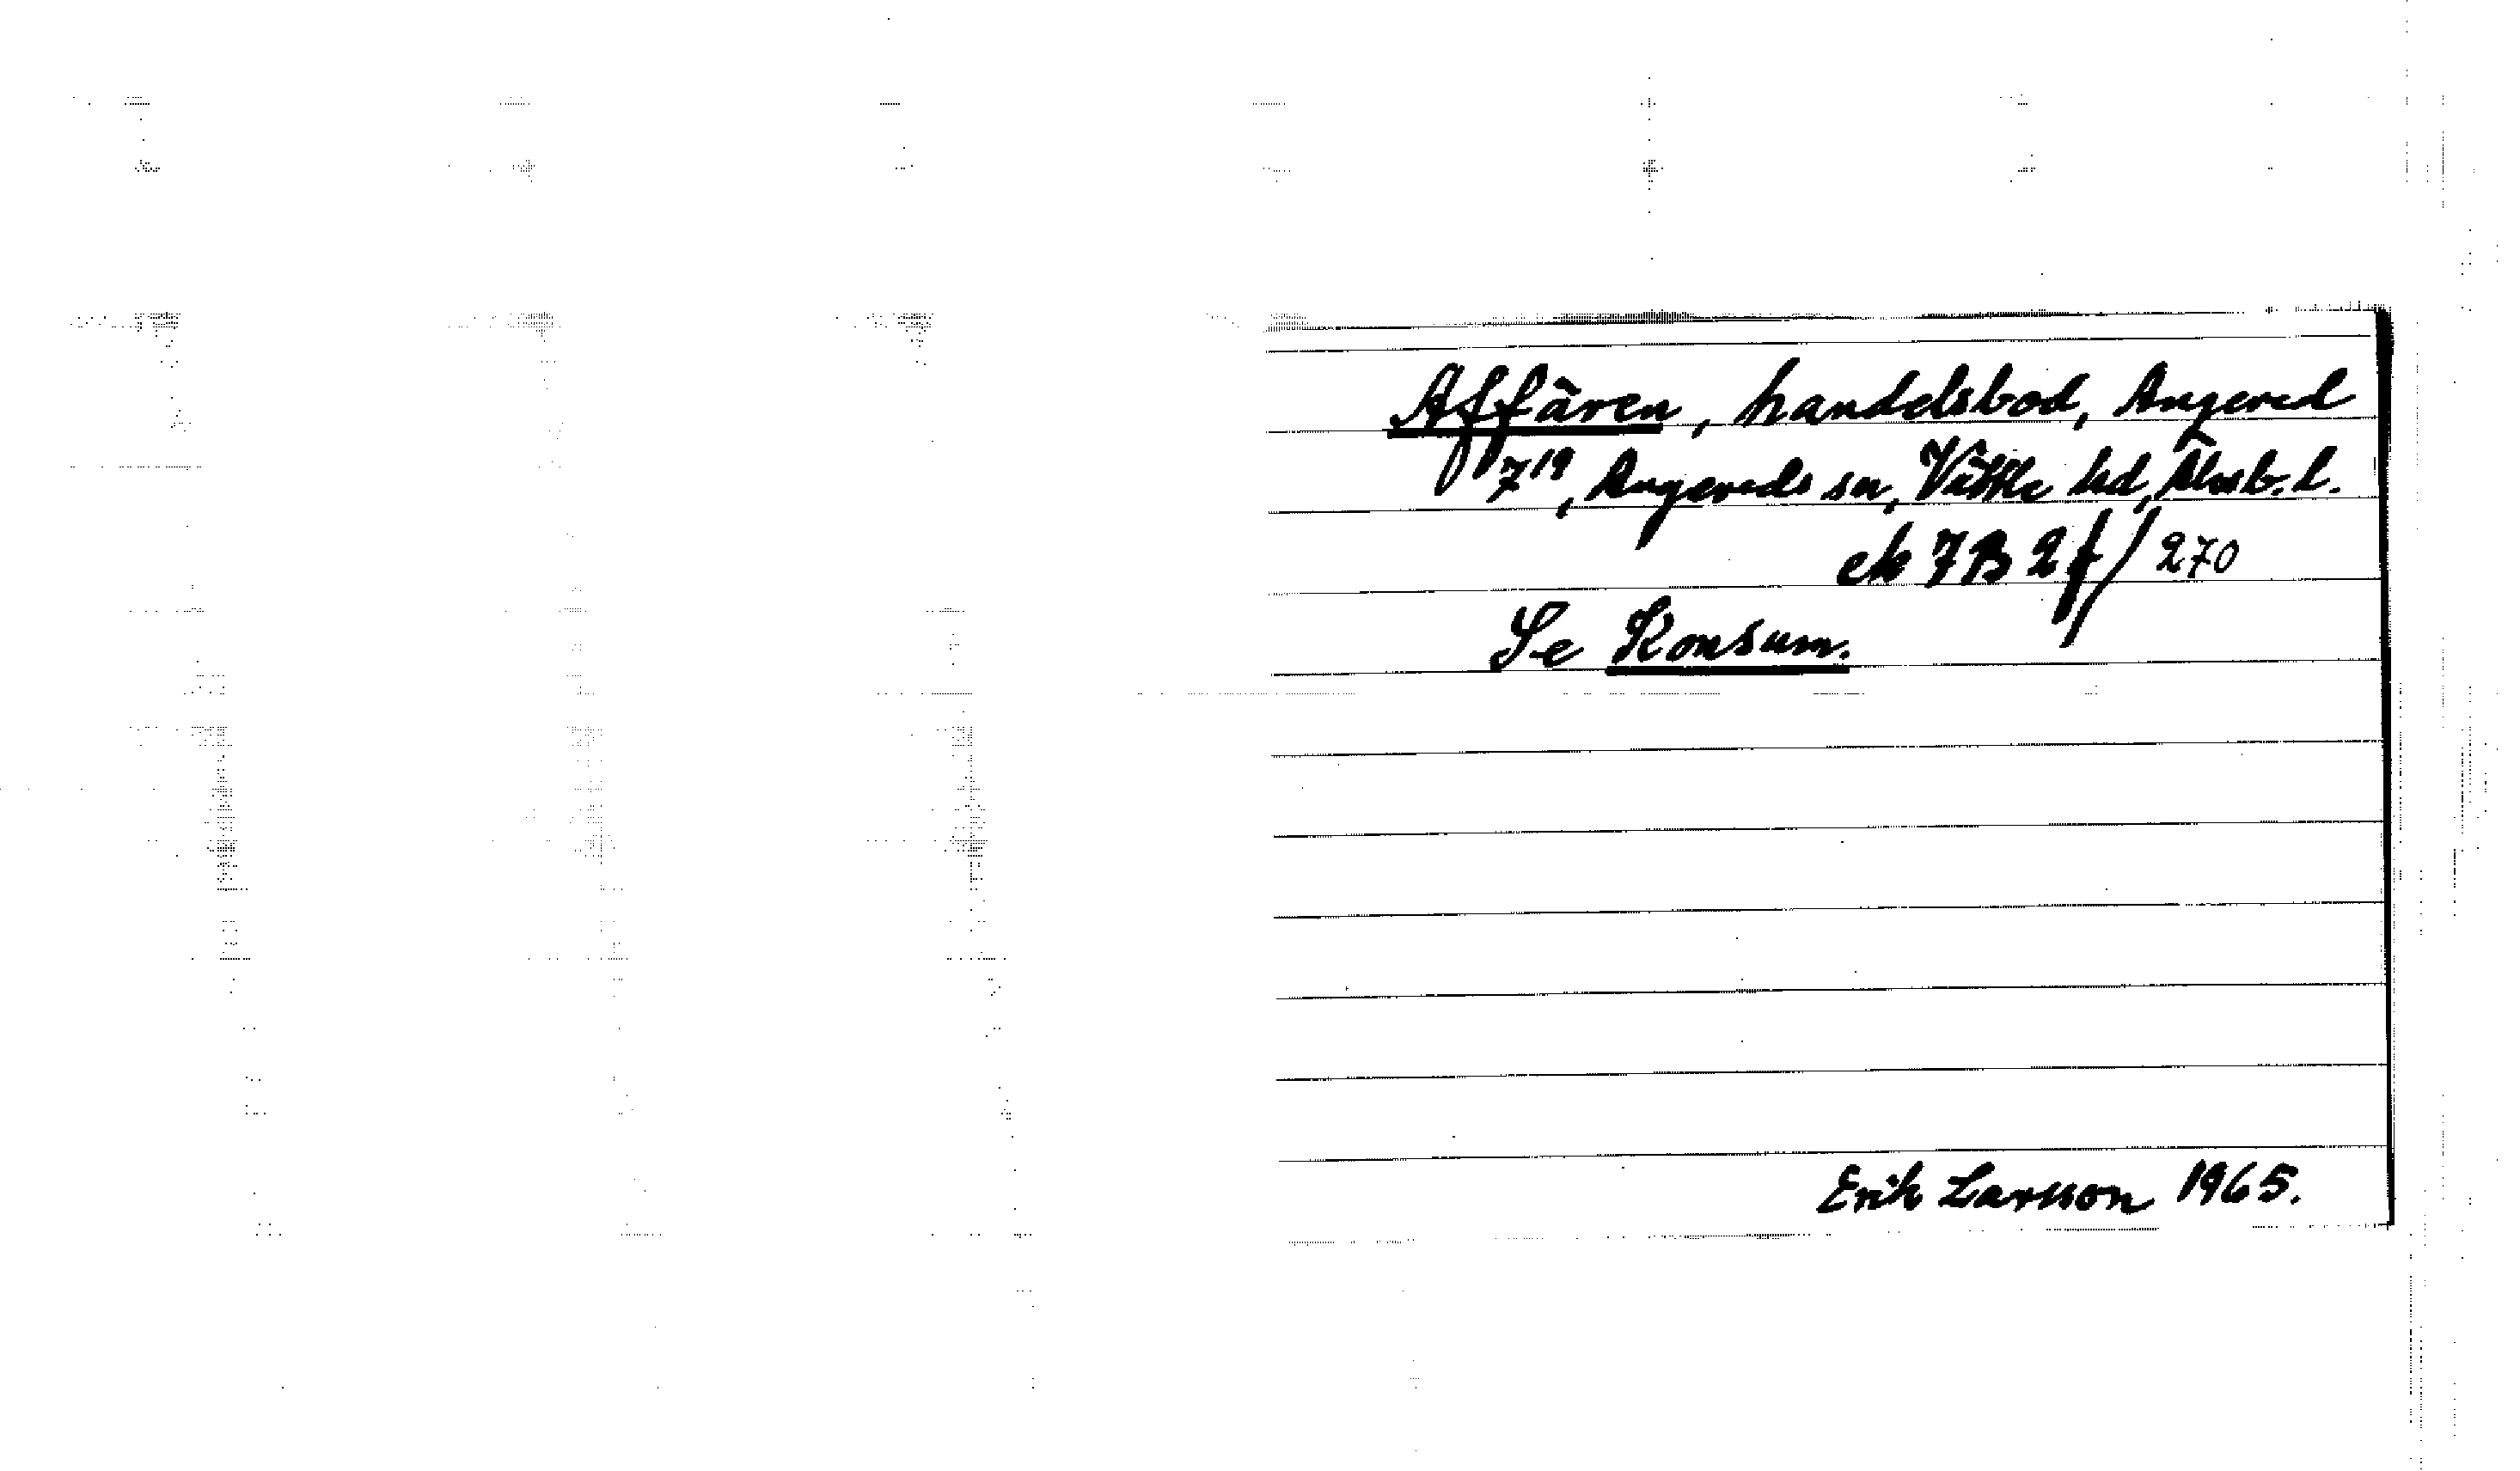 Affären, handelsbod, Angered
7¹⁹, Angereds sn, Vättle hd, Älvsb. l.
ek 7B 2f/270
Se Konsum.
Erik Larsson 1965.